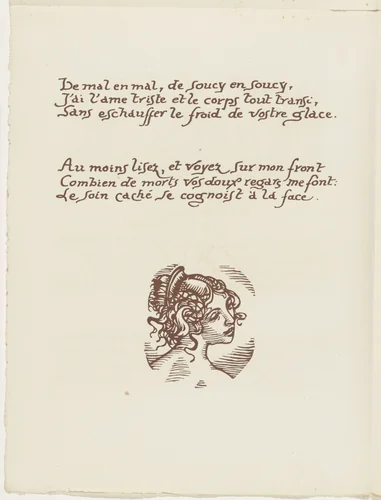 De mal en mal, de soucy en soucy,
J'ai l'ame triste et le corps tout transi,
Sans eschauffer le froid de vostre glace.
Au moins lisez, et voyez sur mon front
Combien de morts vos doux regars me font:
Le soin caché se cognoist à la face.